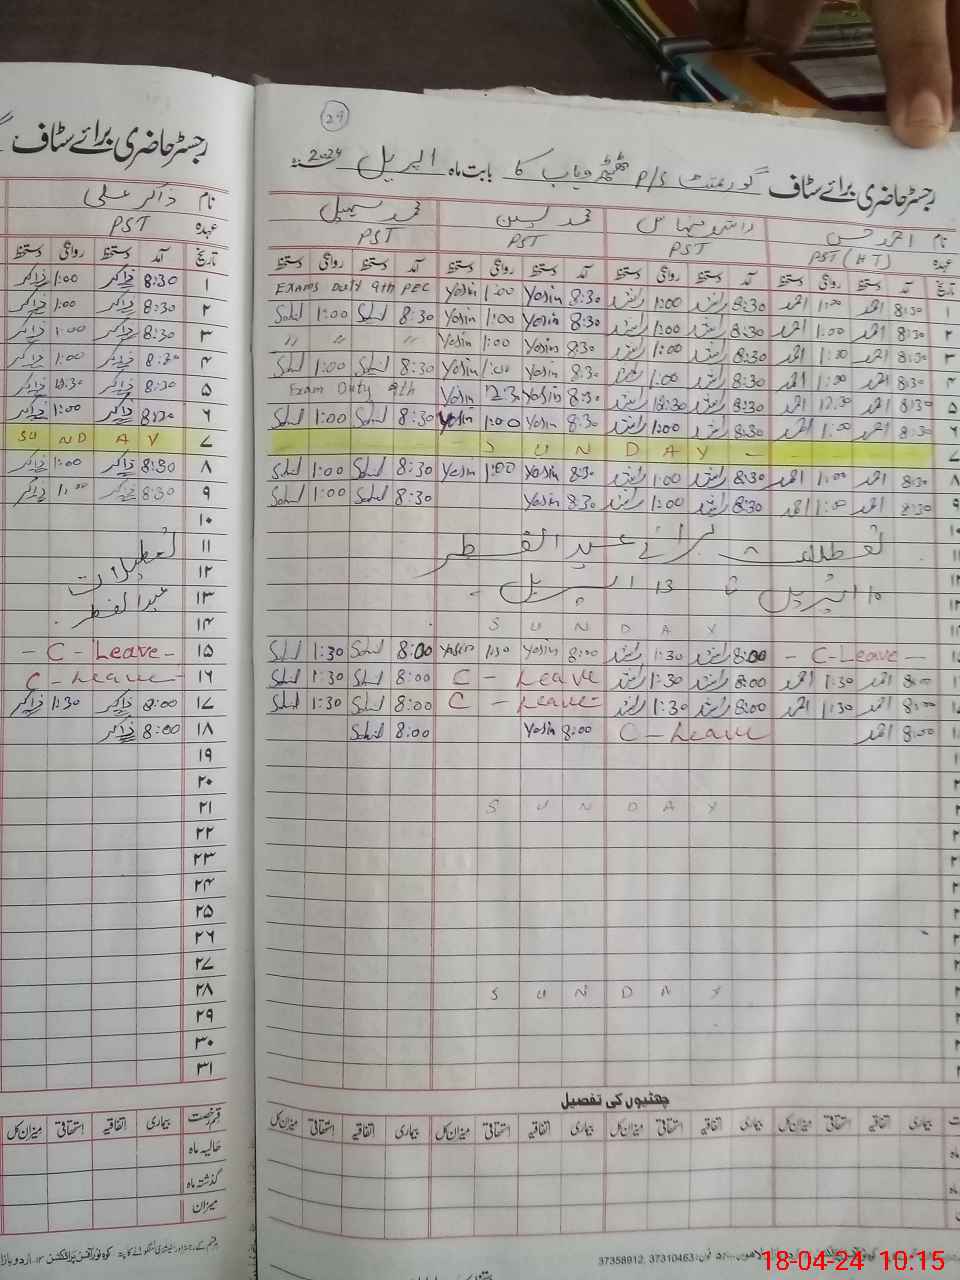 29
رجسٹر حاضری برائے سٹاف گورنمنٹ P/S ٹھٹھہ وہاب کا بابت ماہ اپریل 2024
نام احمد حسن راشد منہاس محمد یٰسین محمد سہیل
عہدہ PST (HT) PST PST PST
تاریخ آمد دستخط روانگی دستخط آمد دستخط روانگی دستخط آمد دستخط روانگی دستخط آمد دستخط روانگی دستخط
۱ 8:30 احمد 1:00 احمد 8:30 راشد 1:00 راشد 8:30 Yasin 1:00 Yasin Exams Duty 9th PEC
۲ 8:30 احمد 1:00 احمد 8:30 راشد 1:00 راشد 8:30 Yasin 1:00 Yasin 8:30 Sohil 1:00 Sohil
۳ 8:30 احمد 1:00 احمد 8:30 راشد 1:00 راشد 8:30 Yasin 1:00 Yasin " " "
۴ 8:30 احمد 1:00 احمد 8:30 راشد 1:00 راشد 8:30 Yasin 1:00 Yasin 8:30 Sohil 1:00 Sohil
۵ 8:30 احمد 12:30 احمد 8:30 راشد 12:30 راشد 8:30 Yasin 12:30 Yasin Exam Duty 9th
۶ 8:30 احمد 1:00 احمد 8:30 راشد 1:00 راشد 8:30 Yasin 1:00 Yasin 8:30 Sohil 1:00 Sohil
۷ - - - - S U N D A Y - - - -
۸ 8:30 احمد 1:00 احمد 8:30 راشد 1:00 راشد 8:30 Yasin 1:00 Yasin 8:30 Sohil 1:00 Sohil
۹ 8:30 احمد 1:00 احمد 8:30 راشد 1:00 راشد 8:30 Yasin 8:30 Sohil 1:00 Sohil
تعطیلات برائے عید الفطر
10 اپریل تا 13 اپریل -
S U N D A Y
- C-Leave - 8:00 راشد 1:30 راشد 8:00 Yasin 1:30 Yasin 8:00 Sohil 1:30 Sohil
8:00 احمد 1:30 احمد 8:00 راشد 1:30 راشد C - Leave 8:00 Sohil 1:30 Sohil
8:00 احمد 1:30 احمد 8:00 راشد 1:30 راشد C - Leave 8:00 Sohil 1:30 Sohil
8:00 احمد C - Leave 8:00 Yasin 8:00 Sohil
S U N D A Y
S U N D A Y
چھٹیوں کی تفصیل
بیماری اتفاقیہ استحقاقی میزان کل بیماری اتفاقیہ استحقاقی میزان کل بیماری اتفاقیہ استحقاقی میزان کل بیماری اتفاقیہ استحقاقی میزان کل
37358912, 37310463
رجسٹر حاضری برائے سٹاف
نام ذاکر علی
عہدہ PST
تاریخ آمد دستخط روانگی دستخط
۱ 8:30 ذاکر 1:00 ذاکر
۲ 8:30 ذاکر 1:00 ذاکر
۳ 8:30 ذاکر 1:00 ذاکر
۴ 8:30 ذاکر 1:00 ذاکر
۵ 8:30 ذاکر 12:30 ذاکر
۶ 8:30 ذاکر 1:00 ذاکر
۷ SU ND A Y
۸ 8:30 ذاکر 1:00 ذاکر
۹ 8:30 ذاکر 1:00 ذاکر
۱۰
۱۱ تعطیلات
۱۲
۱۳ عید الفطر
۱۴
۱۵ - C - Leave -
۱۶ C - Leave -
۱۷ 8:00 ذاکر 1:30 ذاکر
۱۸ 8:00 ذاکر
۱۹
۲۰
۲۱
۲۲
۲۳
۲۴
۲۵
۲۶
۲۷
۲۸
۲۹
۳۰
۳۱
قسم رخصت بیماری اتفاقیہ استحقاقی میزان کل
حالیہ ماہ
گذشتہ ماہ
میزان
18-04-24 10:15